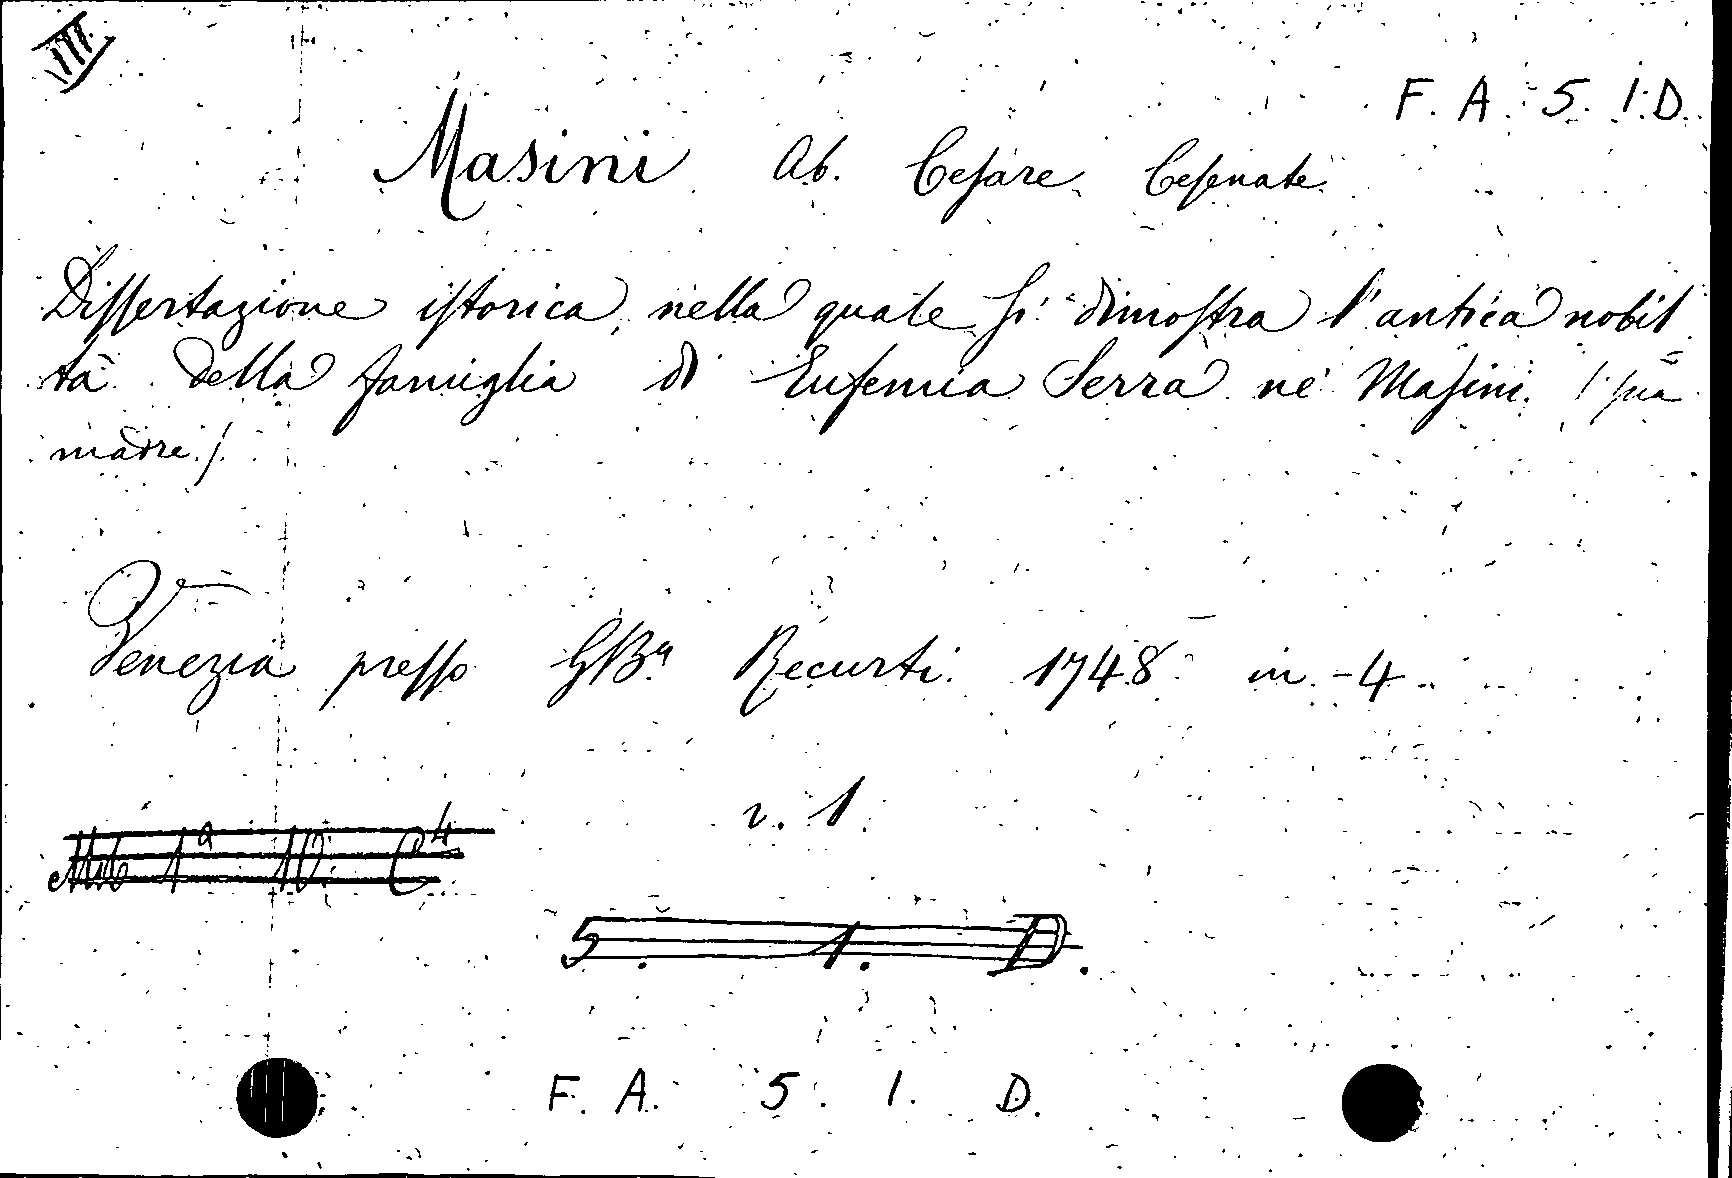 VIII
F. A. 5. 1. D.
Masini Ab. Cesare Cesenate
Dissertazione istorica, nella quale si dimostra l'antica nobil=
tà della famiglia di Eufemia Serra ne' Masini. (sua
madre)
Venezia presso GBa Recurti. 1748 in-4
v. 1
1a 10. C4
5. 1. D.
F. A. 5. 1. D.